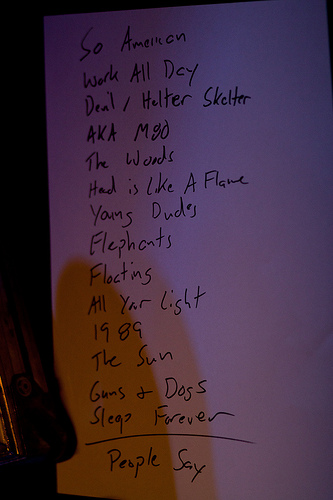 So American
Work All Day
Devil / Helter Skelter
AKA M80
The Woods
Head is Like A Flame
Young Dudes
Elephants
Floating
All Your Light
1989
The Sun
Guns + Dogs
Sleep Forever
People Say